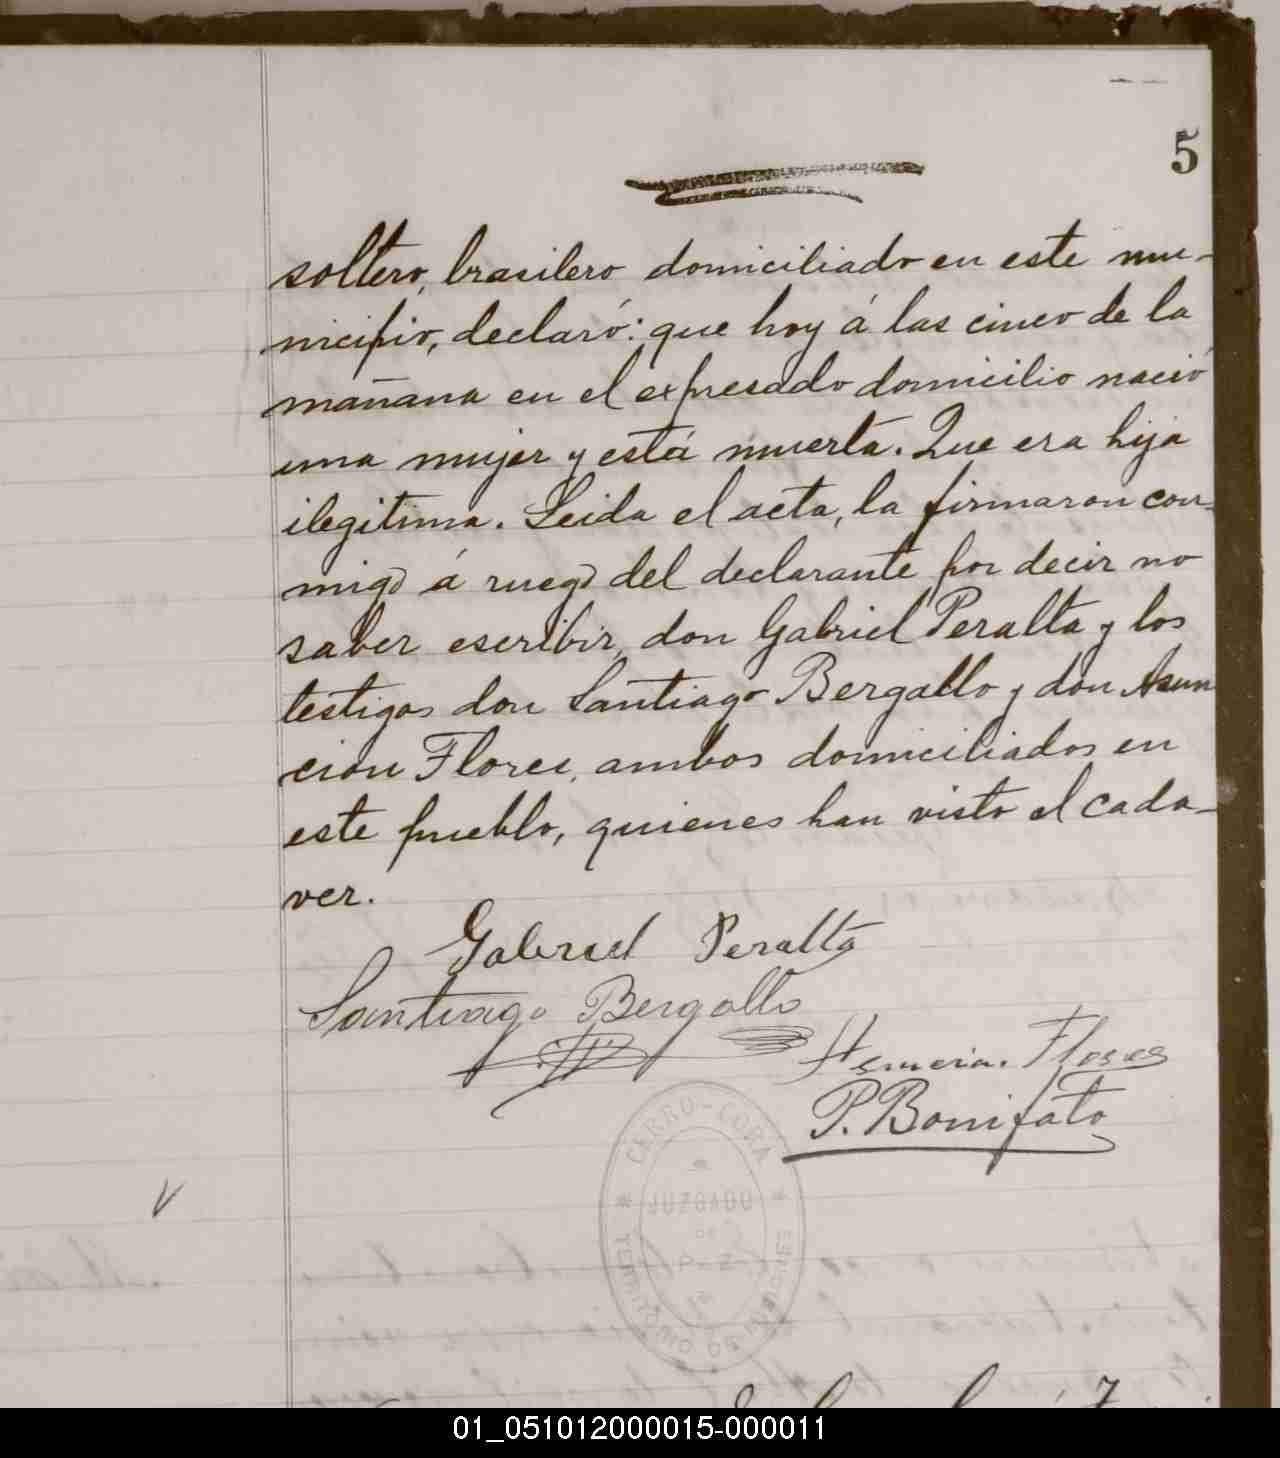 5
soltero, brasilero domiciliado en este mu-
nicipio, declaró: que hoy á las cinco de la
mañana en el expresado domicilio nació
una mujer y está muerta. Que era hija
ilegitima. Leida el acta, la firmaron con-
migo á ruego del declarante por decir no
saber escribir, don Gabriel Peralta y los
testigos don Santiago Bergallo y don Asun
cion Flores, ambos domiciliados en
este pueblo, quienes han visto el cada-
ver.
Gabriel Peralta
Santiago Bergallo
Flores
P. Bonifato
CERRO-CORÁ
JUZGADO
DE
PAZ
TERRITORIO DE MISIONES
01_051012000015-000011